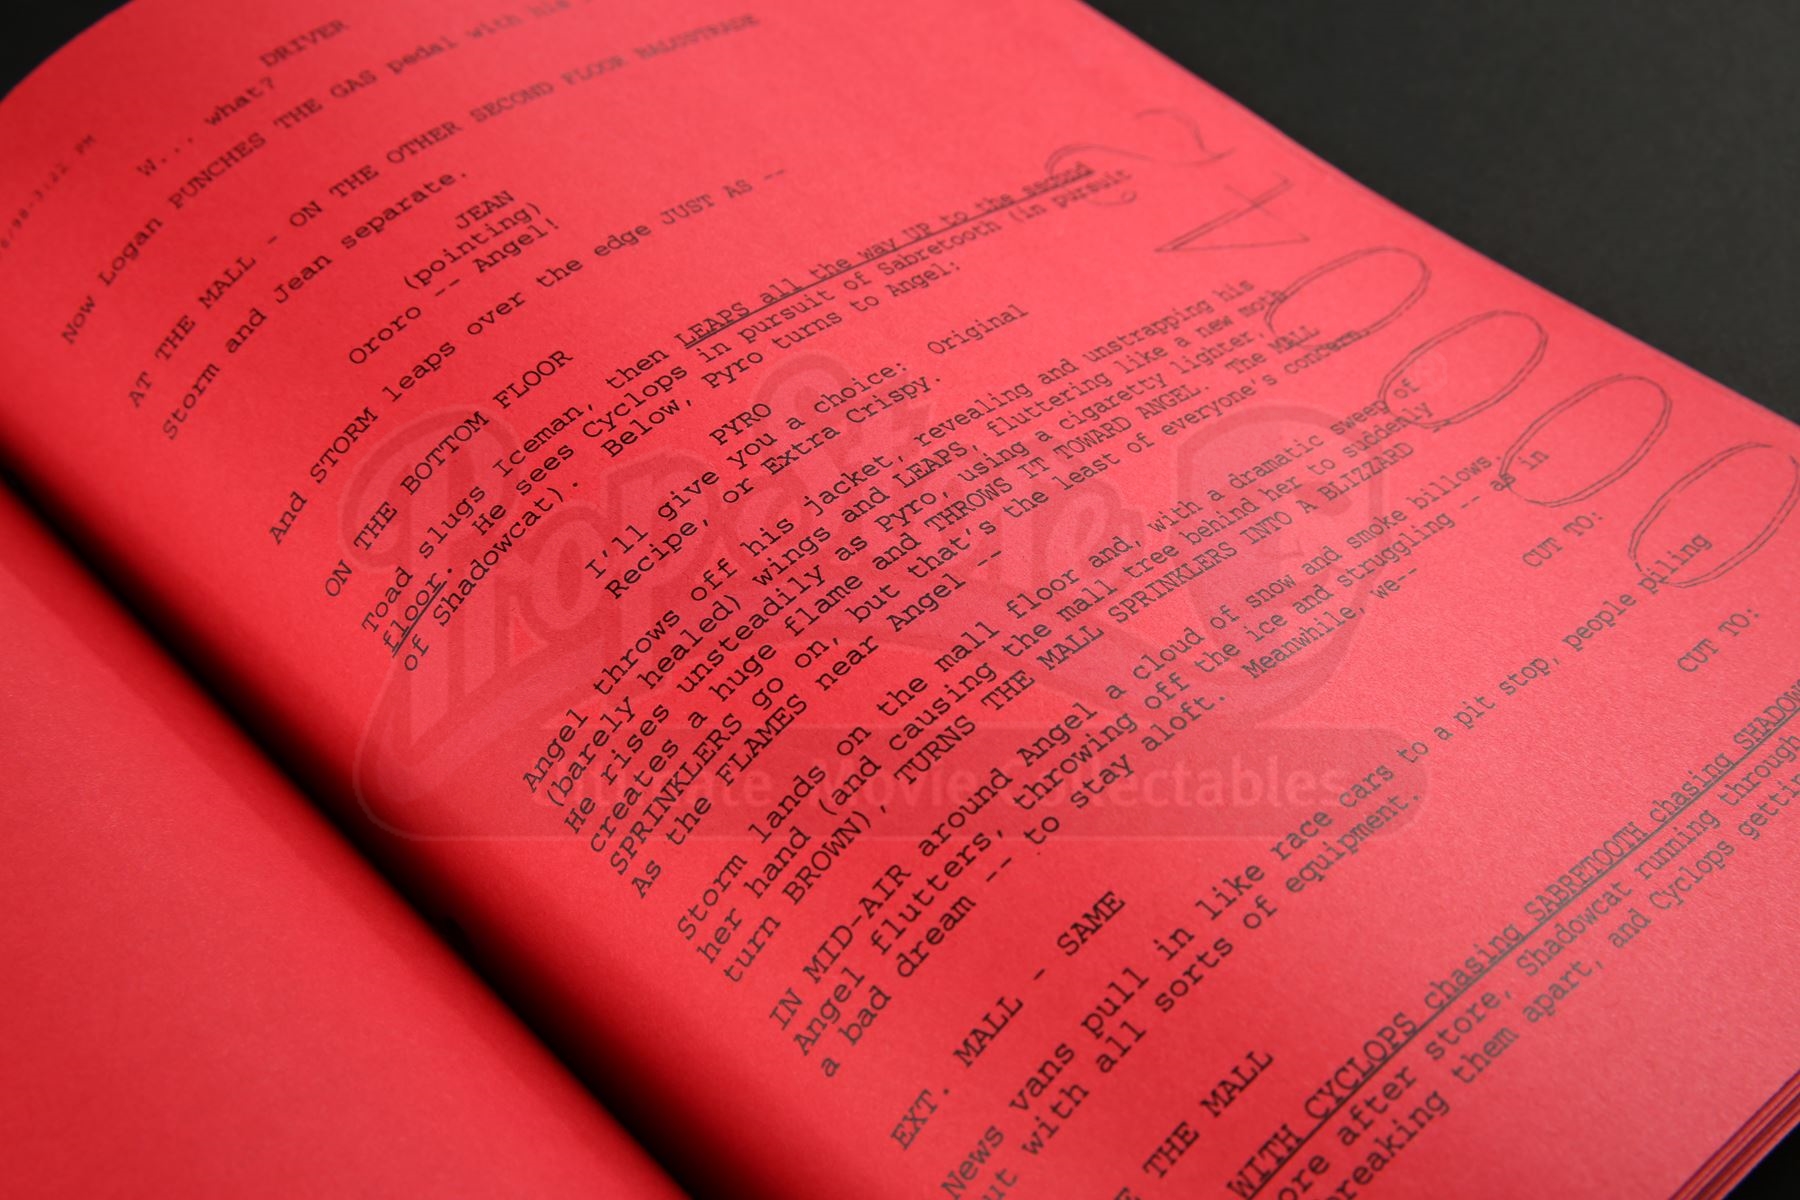 DRIVER
W... what?
Now Logan PUNCHES THE GAS pedal with his
AT THE MALL - ON THE OTHER SECOND FLOOR BALUSTRADE
Storm and Jean separate.
JEAN
(pointing)
Ororo -- Angel!
And STORM leaps over the edge JUST AS --
ON THE BOTTOM FLOOR
Toad slugs Iceman, then LEAPS all the way UP to the second
floor. He sees Cyclops in pursuit of Sabretooth (in pursuit
of Shadowcat). Below, Pyro turns to Angel:
PYRO
I'll give you a choice: Original
Recipe, or Extra Crispy.
Angel throws off his jacket, revealing and unstrapping his
(barely healed) wings and LEAPS, fluttering like a new moth.
He rises unsteadily as Pyro, using a cigaretty lighter,
creates a huge flame and THROWS IT TOWARD ANGEL. The MALL
SPRINKLERS go on, but that's the least of everyone's concern,
As the FLAMES near Angel --
Storm lands on the mall floor and, with a dramatic sweep of
her hand (and causing the mall tree behind her to suddenly
turn BROWN), TURNS THE MALL SPRINKLERS INTO A BLIZZARD
IN MID-AIR around Angel a cloud of snow and smoke billows.
Angel flutters, throwing off the ice and struggling -- as in
a bad dream -- to stay aloft. Meanwhile, we--
CUT TO:
EXT. MALL - SAME
News vans pull in like race cars to a pit stop, people piling
out with all sorts of equipment.
CUT TO:
THE MALL
WITH CYCLOPS chasing SABRETOOTH chasing SHADOW
ore after store, Shadowcat running through
breaking them apart, and Cyclops gettin
42
Prop Store
Ultimate Movie Collectables